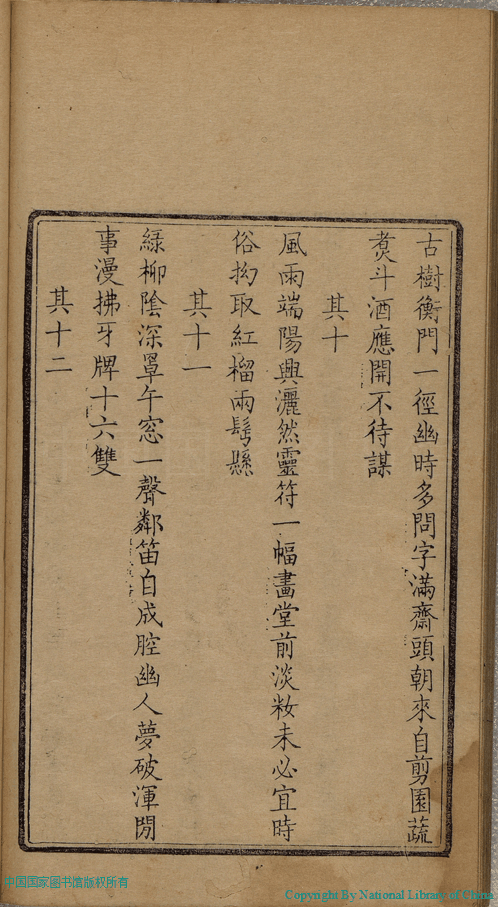 古樹衡門一徑幽時多問字滿齋頭朝來自剪園蔬
煑斗酒應開不待謀
其十
風雨端陽興灑然靈符一幅畫堂前淡粧未必宜時
俗拗取紅榴兩髩懸
其十一
綠柳陰深罩午窓一聲鄰笛自成腔幽人夢破渾閒
事漫拂牙牌十六雙
其十二
中国国家图书馆版权所有
Copyright By National Library of China